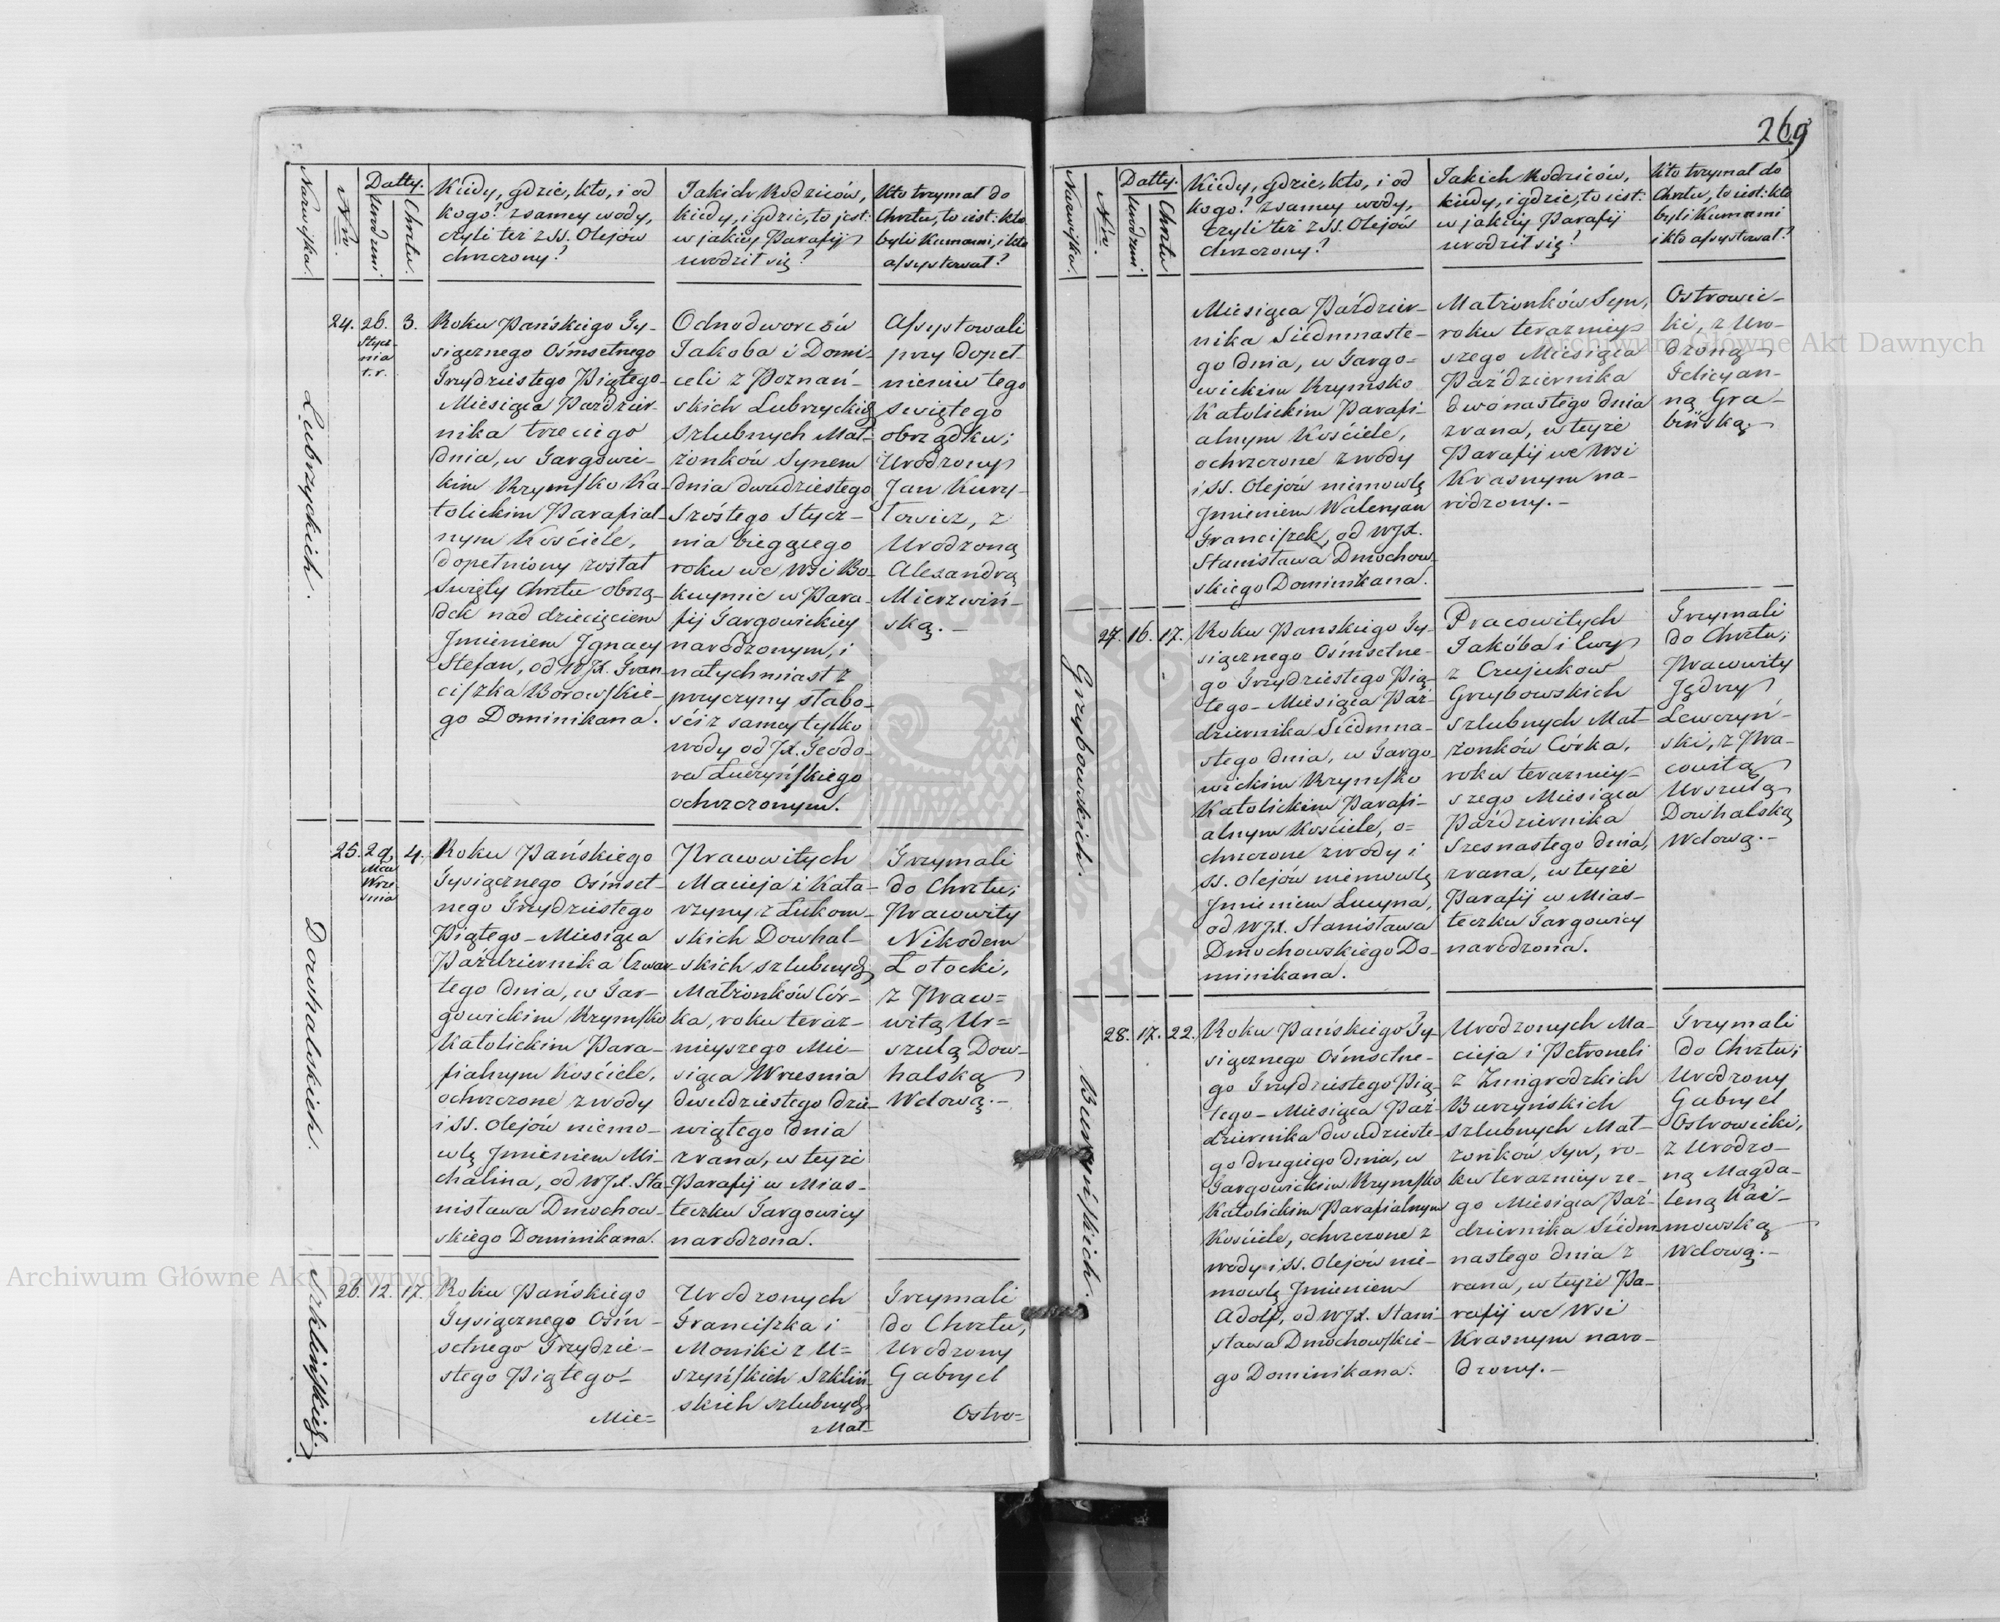 269
Nazwiska.
Nrw.
Datty.
urodzeni
Chrztu.
Kiedy, gdzie, kto, i od
kogo? z samey wody,
czyli też z SS. Olejów
chrzczony?
Jakich Rodziców,
kiedy, i gdzie, to jest:
w jakiéy Parafij
urodził się?
Kto trzymał do
Chrztu, to iest: kto
byli Kumami, i kto
assystował?
Lubrzyckich.
24.
26.
Stycz-
nia
t. r.
3.
Roku Pańskiego Ty-
siącznego Ośmsetnego
Trzydziestego Piątego-
Miesiąca Paździer-
nika trzeciego
dnia, w Targowic-
kim Rzymsko Ka-
tolickim Parafial-
nym Kościele,
dopełniony został
Swięty Chrztu obrzą-
dek nad dziecięciem
Jmieniem Jgnacy
Stefan, od WJX. Fran-
ciszka Borowskie-
go Dominikana.
Odnodworców
Jakoba i Domi-
celi z Poznań-
skich Lubrzyckich
szlubnych Mał-
żonków Synem
dnia dwudziestego
Szóstego Stycz-
nia bieżącego
roku we Wsi Bo-
kuymie w Para-
fij Targowickiey
narodzonym, i
natychmiast z
przyczyny słabo-
ści z samey tylko
wody od JX. Teodo-
ra Luczyńskiego
ochrzczonym.
Assystowali
przy dopeł-
nieniu tego
swiętego
obrządku;
Urodzony
Jan Kury-
łowicz, z
Urodzoną
Alexandrą
Mierzwiń-
ską. -
Dowhalskich.
25.
29.
Mca
Wrze-
śnia
4.
Roku Pańskiego
Tysiącznego Ośmset-
nego Trzydziestego
Piątego - Miesiąca
Października Czwar-
tego dnia, w Tar-
gowickim Rzymsko
Katolickim Para-
fialnym Kościele,
ochrzczone z wody
i SS. Olejów niemo-
wlę Jmieniem Mi-
chalina, od WJX. Sta-
nisława Dmochow-
skiego Dominikana.
Pracowitych
Macieja i Kata-
rzyny z Lukom-
skich Dowhal-
skich szlubnych
Małżonków Cór-
ka, roku teraz-
nieyszego Mie-
siąca Wrzesnia
dwudziestego dzie-
wiątego dnia
zrana, w teyże
Parafij w Mias-
teczku Targowicy
narodzona.
Trzymali
do Chrztu;
Pracowity
Nikodem
Lotocki,
z Praco=
witą Ur=
szulą Dow-
halską
Wdową. -
Szklińskich.
26.
12.
17.
Roku Pańskiego
Tysiącznego Ośm-
setnego Trzydzie-
stego Piątego -
Mie=
Urodzonych
Franciszka i
Moniki z U=
szyńskich Szkliń-
skich szlubnych
Mał-
Trzymali
do Chrztu,
Urodzony
Gabryel
Ostro=
Nazwiska.
Nrw.
Datty.
urodzeni
Chrztu
Kiedy, gdzie, kto, i od
kogo? z samey wody,
czyli też z SS. Olejów
chrzczony?
Jakich Rodziców,
kiedy, i gdzie, to iest:
w jakiéy Parafij
urodził się?
Kto trzymał do
Chrztu, to iest: kto
byli Kumami
i kto assystował?
Miesiąca Paździer-
nika Siedmnaste-
go dnia, w Targo=
wickim Rzymsko
Katolickim Parafi-
alnym Kościele,
ochrzczone z wody
i SS. Olejów niemowlę
Jmieniem Waleryan
Franciszek, od WJX.
Stanisława Dmochow-
skiego Dominikana.
Małżonków Syn,
roku teraźniey-
szego Miesiąca
Października
dwónastego dnia
zrana, w teyże
Parafij we Wsi
Krasnym na-
rodzony. -
Ostrowic-
ki, z Uro-
dzoną
Felicyan-
ną Gra-
bińską. -
Grzybowskich.
27.
16.
17.
Roku Pańskiego Ty-
siącznego Ośmsetne-
go Trzydziestego Pią-
tego - Miesiąca Paź-
dziernika Siedmna-
stego dnia, w Targo-
wickim Rzymsko
Katolickim Parafi-
alnym Kościele, o=
chrzczone z wody i
SS. Olejów niemowlę
Jmieniem Lucyna,
od WJX. Stanisława
Dmochowskiego Do-
minikana.
Pracowitych
Jakóba i Ewy
z Czujuków
Grzybowskich
szlubnych Mał-
żonków Córka,
roku terazniey-
szego Miesiąca
Października
Szesnastego dnia,
zrana, w teyże
Parafij w Mias-
teczku Targowicy
narodzona.
Trzymali
do Chrztu;
Pracowity
Jędrzy
Lewczyń-
ski, z Pra-
cowitą
Urszulą
Dowhalską
Wdową. -
Burzyńskich.
28.
17.
22.
Roku Pańskiego Ty-
siącznego Ośmsetne-
go Trzydziestego Pią-
tego - Miesiąca Paź-
dziernika dwudzieste-
go drugiego dnia, w
Targowickim Rzymsko
Katolickim Parafialnym
Kościele, ochrzczone z
wody i SS. Olejów nie-
mowlę Jmieniem
Adolf, od WJX. Stani-
sława Dmochowskie-
go Dominikana.
Urodzonych Ma-
cieja i Petroneli
z Zmigrodzkich
Burzyńskich
szlubnych Mał-
żonków Syn, ro-
ku teraznieysze-
go Miesiąca Paź-
dziernika Siedm-
nastego dnia z
rana, w teyże Pa-
rafij we Wsi
Krasnym naro-
dzony. -
Trzymali
do Chrztu;
Urodzony
Gabryel
Ostrowicki,
z Urodzo-
ną Magda-
leną Kaź-
mowską
Wdową. -
Archiwum Główne Akt Dawnych
Archiwum Główne Akt Dawnych